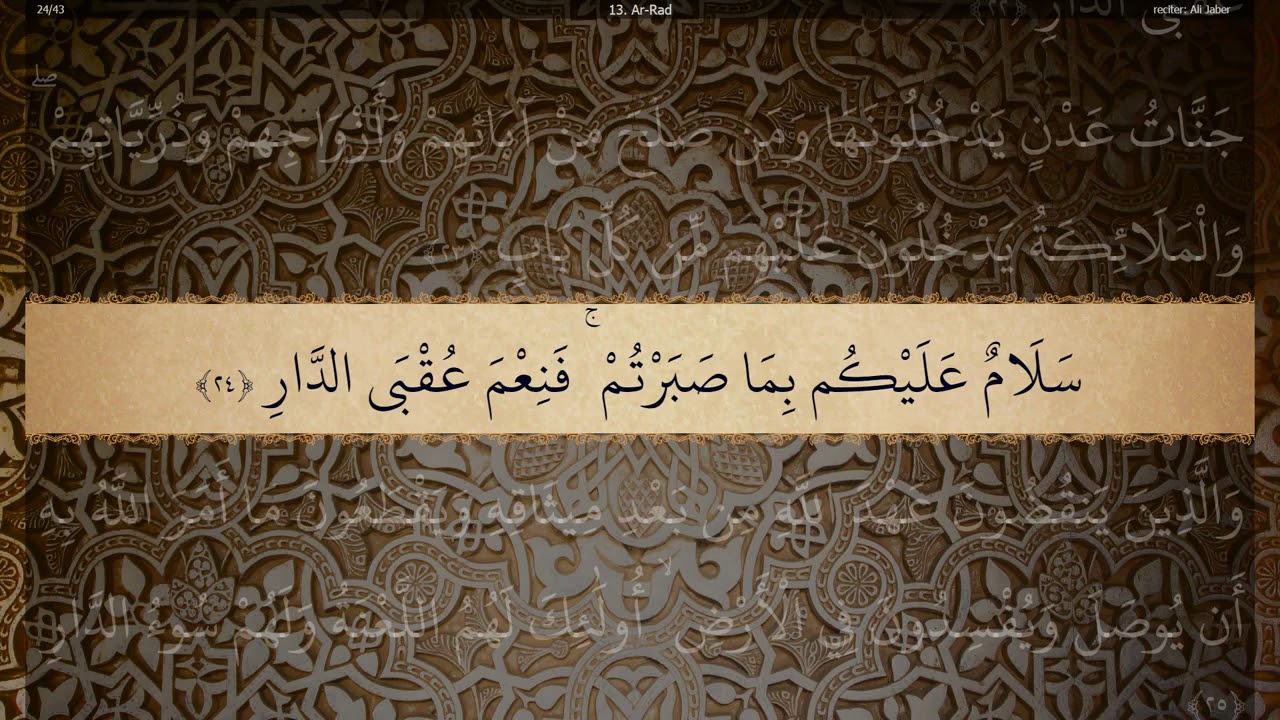 24/43
13. Ar-Rad
reciter: Ali Jaber
بَى الدَّارِ ﴿٢٢﴾
جَنَّاتُ عَدْنٍ يَدْخُلُونَهَا وَمَن صَلَحَ مِنْ آبَائِهِمْ وَأَزْوَاجِهِمْ وَذُرِّيَّاتِهِمْ ۖ
وَالْمَلَائِكَةُ يَدْخُلُونَ عَلَيْهِم مِّن كُلِّ بَابٍ ﴿٢٣﴾
سَلَامٌ عَلَيْكُم بِمَا صَبَرْتُمْ ۚ فَنِعْمَ عُقْبَى الدَّارِ ﴿٢٤﴾
وَالَّذِينَ يَنقُضُونَ عَهْدَ اللَّهِ مِن بَعْدِ مِيثَاقِهِ وَيَقْطَعُونَ مَا أَمَرَ اللَّهُ بِهِ
أَن يُوصَلَ وَيُفْسِدُونَ فِي الْأَرْضِ ۙ أُولَٰئِكَ لَهُمُ اللَّعْنَةُ وَلَهُمْ سُوءُ الدَّارِ
﴿٢٥﴾